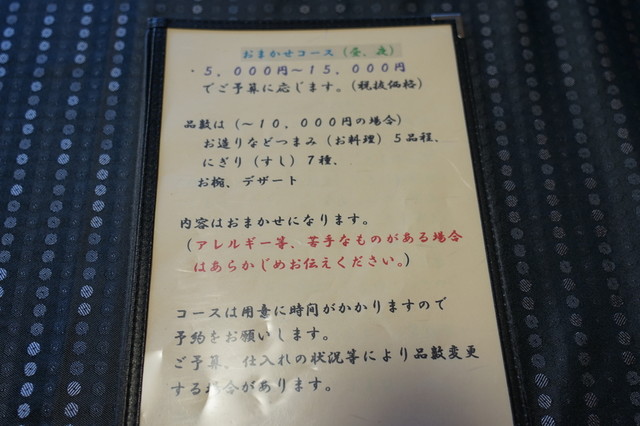 おまかせコース（昼、夜）
・５，０００円～１５，０００円
でご予算に応じます。（税抜価格）
品数は（～１０，０００円の場合）
お造りなどつまみ（お料理）５品程、
にぎり（すし）７種、
お椀、デザート
内容はおまかせになります。
（アレルギー等、苦手なものがある場合
はあらかじめお伝えください。）
コースは用意に時間がかかりますので
予約をお願いします。
ご予算、仕入れの状況等により品数変更
する場合があります。